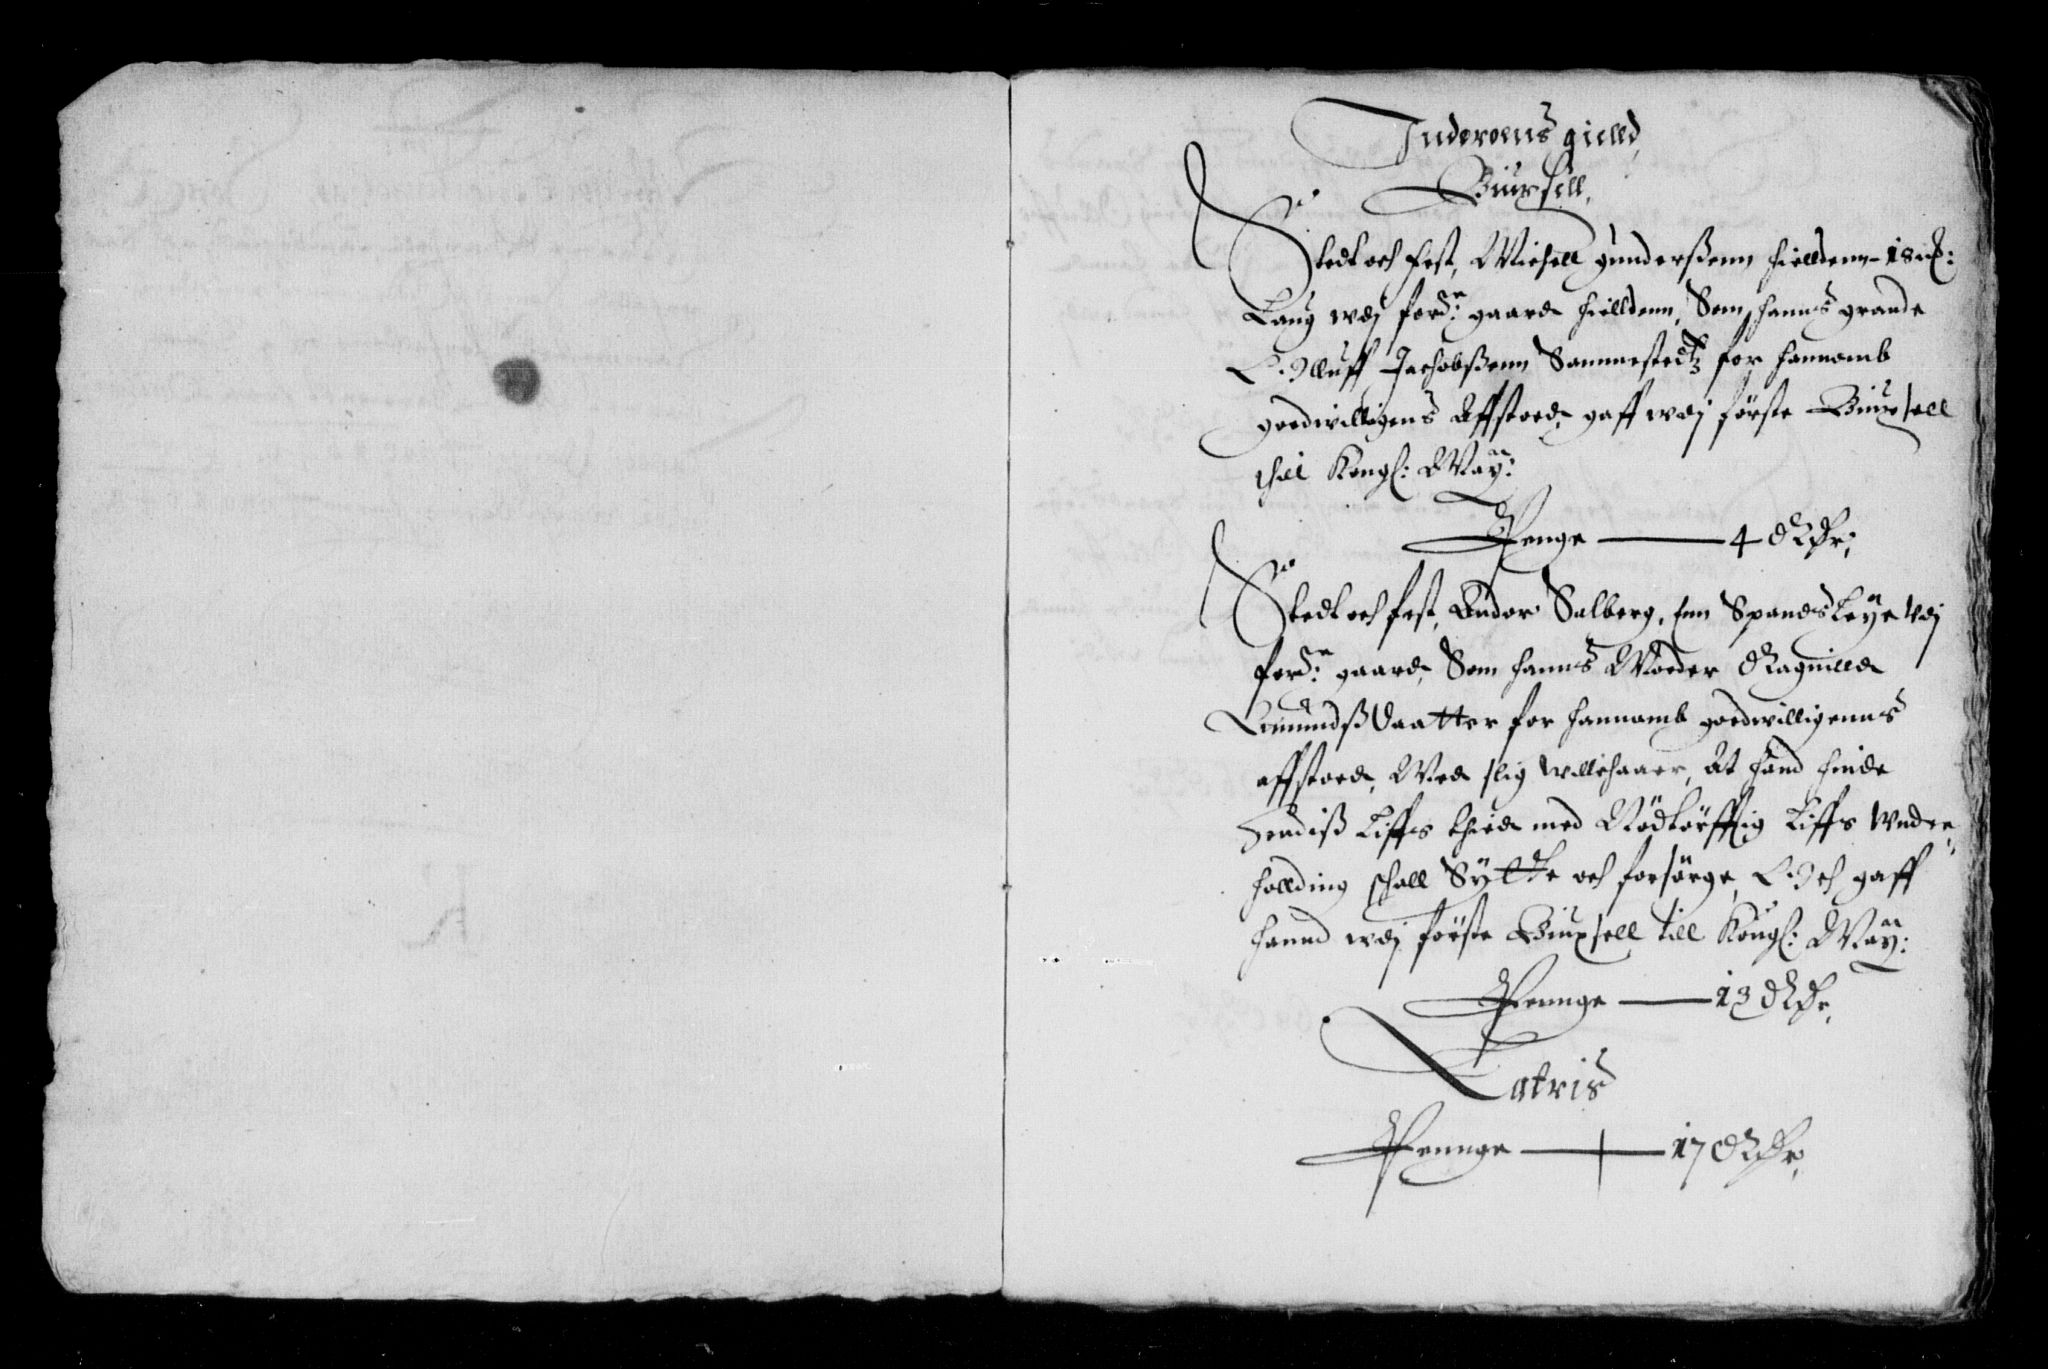 Inderoens gielld
Biuxsell,
Stedt och fest, Michell gunderßenn hielldenn 18 m̶:
Laug wdj ford:ne gaard hielldenn, Som hanns grande
Olluff Jachobßenn Sammestedtz for hannomb
goedwilligens Affstoed, gaff wdj förste Biuxsell
thil Kongl: May:tt
Penge — 4 Rdr:
Stedt och fest, Endor Salberg, Enn Spandsleye vdj
ford:ne gaard, Som hanns Moeder Ragnilld
Emundßdaatter for hannomb goedwilligenns
affstoed, Med slig willchaaer, At hand hinde
Hendiß Liffs thied med Nödtörfftig Liffs wnder,,
hollding schall Söcke och forsörge, Och gaff
hannd wdj förste Biuxsell till Kongl: May:tt
Pennge — 13 Rdr,
Latris
Pennge — 17 Rdr,